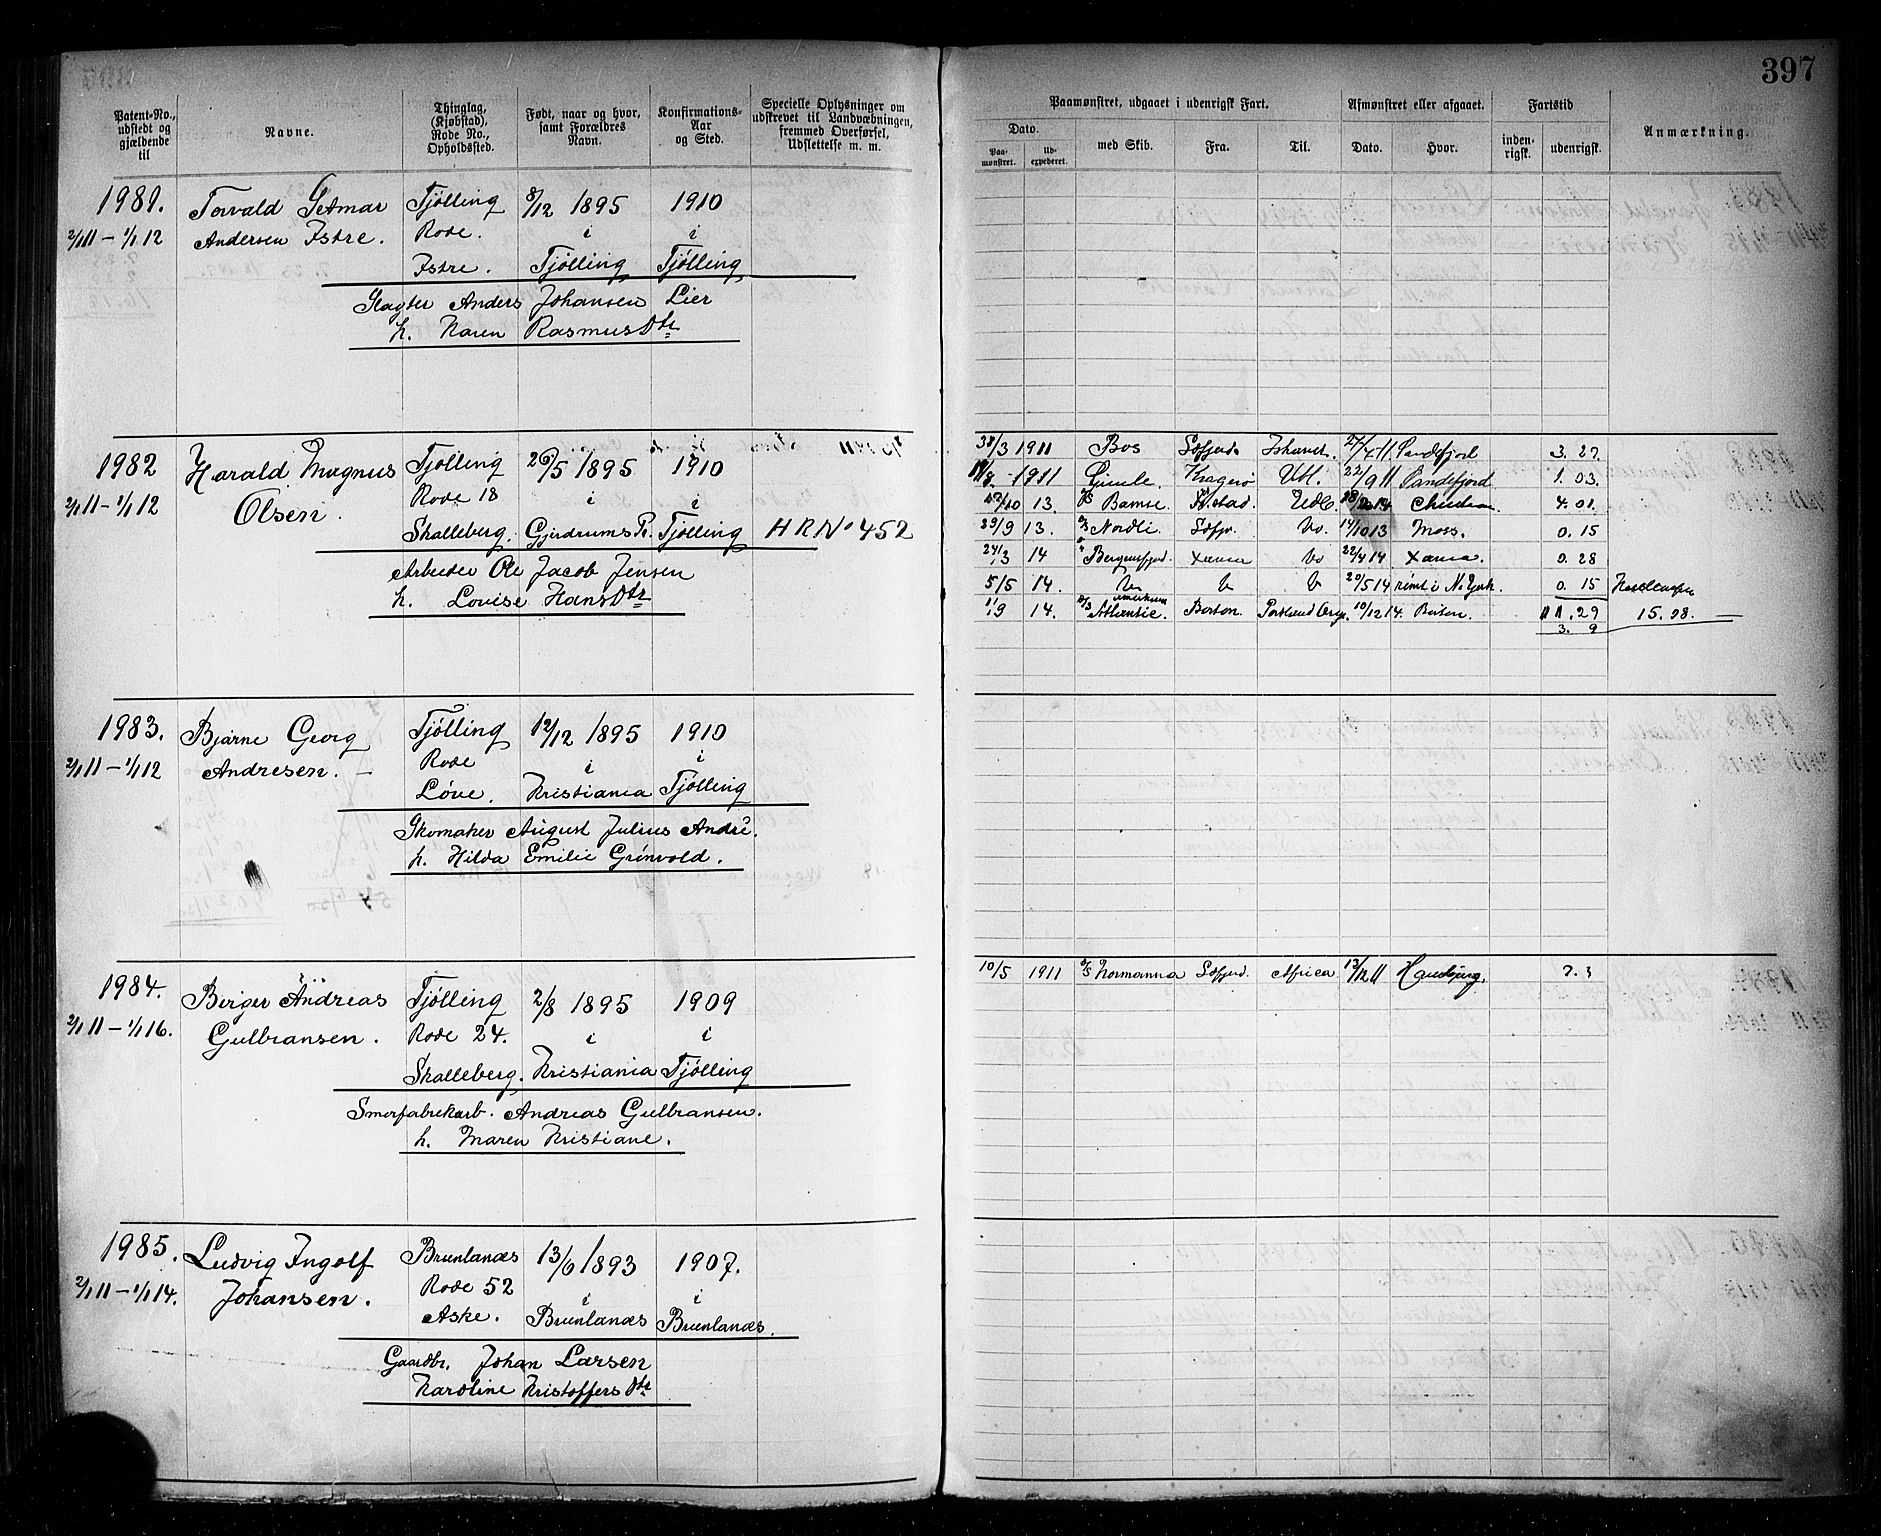 397
Patent-No., udstedt og gjældende til
Navne.
Thinglag, (Kjøbstad), Rode No., Opholdssted.
Født, naar og hvor, samt Forældres Navn.
Konfirmations-Aar og Sted.
Specielle Oplysninger om udskrevet til Landvæbningen, fremmed Overførsel, Udslettelse m. m.
Paamønstret, udgaaet i udenrigsk Fart.
Afmønstret eller afgaaet.
Fartstid
Anmærkning.
Dato.
Paa-mønstret.
Ud-expederet.
med Skib.
Fra.
Til.
Dato.
Hvor.
inden-rigsk.
udenrigsk.
1981. Torvald Getmar Tjølling 8/12 1895 1910
2/1 11 – 1/1 12 Andersen Istre. Rode. i i
Istre. Tjølling Tjølling
Slagter Anders Johansen Lier
h. Karen RasmusDtr
1982 Harald Magnus Tjølling 29/5 1895 1910
2/1 11 – 1/1 12 Olsen. Rode 18 i i
Skalleberg. Gjerdrums Pr. Tjølling H R No 452
Arbeider Ole Jacob Jensen
h. Louise HansDtr
/3 1911 Bos Ishavet. Sandefjord 3. 27.
1911 Gimle. Kragerø Udl. 22/9 11 Sandefjord 1. 03.
/10 13. Bamse. 4. 01.
29/9 13. Nordli Do. 14/10 13 Moss. 0. 15
24/3 14 Bergensfjord Xania Do 22/4 14 Xania. 0. 28
5/5 14. Do Do Do 20/5 14 rømt i N. York. 0. 15
1/9 14. Atlantic. Boston. Portland 10/12 14. Boston. 11. 29 15. 08.
3. 9
1983. Bjarne Georg Tjølling 12/12 1895 1910
2/1 11 – 1/1 12 Andresen. – Rode i i
Løve. Kristiania Tjølling
Skomaker August Julius André.
h. Hilda Emilie Grönvold.
1984. Berger Andreas Tjölling 2/8 1895 1909
2/1 11 – 1/1 16. Gulbransen. Rode 24. i i
Skalleberg. Kristiania Tjölling
Smørfabrikarb. Andreas Gulbransen.
h. Maren Kristiane.
10/5 1911 Normanna Africa 13/12 11 Hamburg. 7. 3
1985. Ludvig Ingolf Brunlanæs 13/6 1893 1907.
2/1 11 – 1/1 14. Johansen. Rode 52 i i
Aske. Brunlanæs Brunlanæs.
Gaardbr. Johan Larsen
Karoline KristoffersDtr